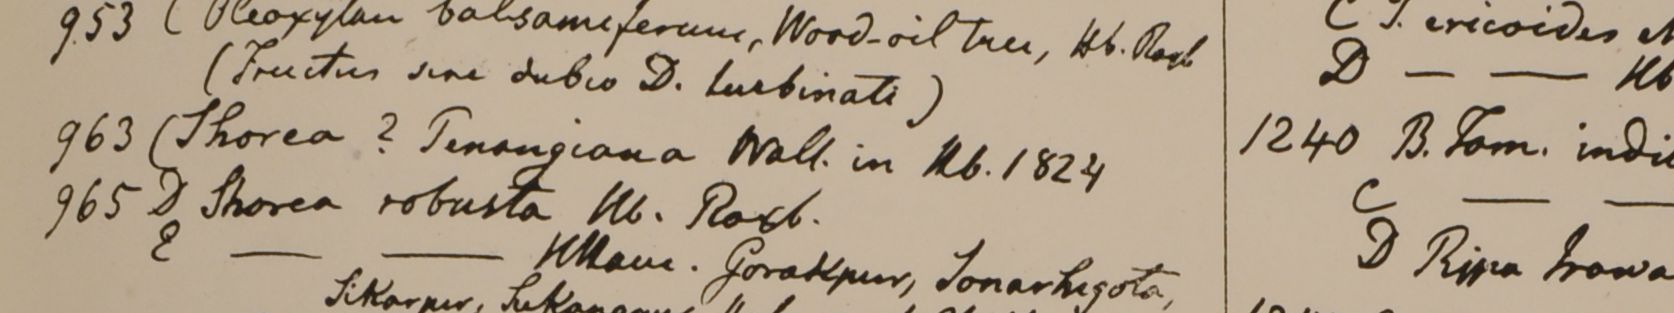 953 ( Pleoxylon balsamiferum, Wood-oil tree, Hb. Roxb
(Fructus sine dubio D. turbinati)
963 (Shorea ? Penangiana Wall. in Hb. 1824
965 D Shorea robusta Hb. Roxb.
E — — HHam. Gorakpur,
Sikarpur,
C T. ericoides
D — — Hb
1240 B. Tam. indi
C — —
D Rippa Irawa